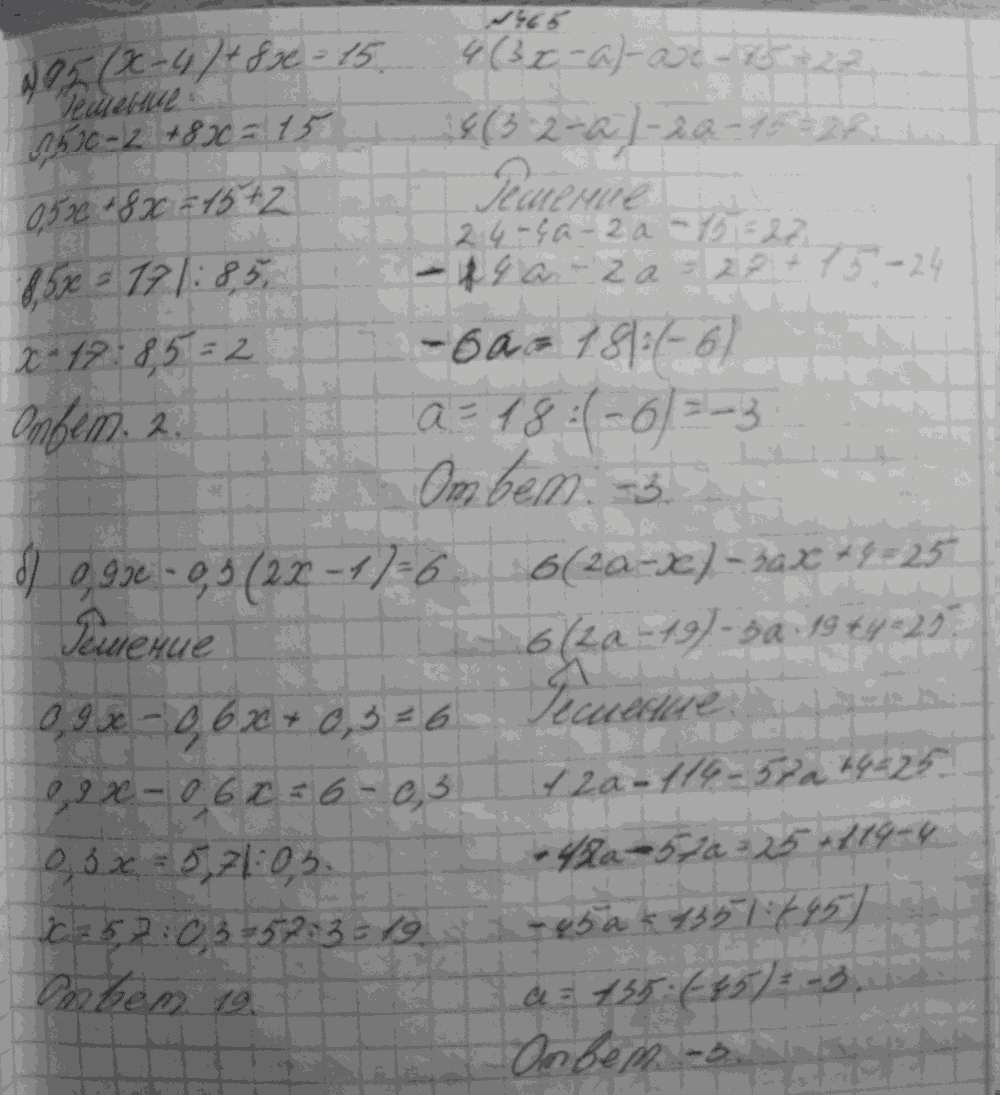 №465
а) 0,5(x-4)+8x=15.
Решение.
0,5x-2+8x=15
0,5x+8x=15+2
8,5x=17|:8,5.
x=17:8,5=2
Ответ. 2.
4(3x-a)-ax-15=27
4(3·2-a)-2a-15=27.
Решение
24-4a-2a-15=27.
-4a-2a=27+15-24
-6a=18|:(-6)
a=18:(-6)=-3
Ответ. -3.
б) 0,9x-0,3(2x-1)=6
Решение
0,9x-0,6x+0,3=6
0,9x-0,6x=6-0,3
0,3x=5,7|:0,3.
x=5,7:0,3=57:3=19.
Ответ. 19.
6(2a-x)-3ax+4=25
6(2a-19)-3a·19+4=25.
Решение.
12a-114-57a+4=25.
12a-57a=25+114-4
-45a=135|:(-45)
a=135:(-45)=-3.
Ответ. -3.